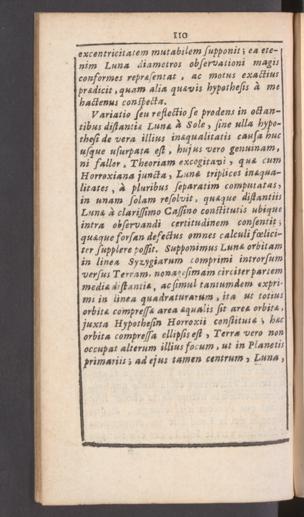 110
excentricitatem mutabilem supponit; ea ete-
nim Lunæ diametros observationi magis
conformes repræsentat, ac motus exactius
prædicit, quam alia quævis hypothesis à me
hactenus conspecta.
Variatio seu reflectio se prodens in octan-
tibus distantiæ Lunæ à Sole, sine ulla hypo-
thesi de vera illius inæqualitatis causa huc
usque usurpata est, hujus vero genuinam,
ni fallor, Theoriam excogitavi, quæ cum
Horroxiana juncta, Lunæ triplices inæqua-
litates, à pluribus separatim computatas,
in unam solam resolvit, quæque distantiis
Lunæ à clarissimo Cassino constitutis ubique
intra observandi certitudinem consentit;
quæque forsan defectus omnes calculi fœlici-
ter supplere possit. Supponimus Lunæ orbitam
in linea Syzygiarum comprimi introrsum
versus Terram, nonagesimam circiter partem
mediæ distantiæ, ac simul tantumdem expri-
mi in linea quadraturarum, ita ut totius
orbitæ compressæ area æqualis sit areæ orbitæ,
juxta Hypothesin Horroxii constitutæ; hæc
orbita compressa ellipsis est, Terra vero non
occupat alterum illius focum, ut in Planetis
primariis; ad ejus tamen centrum, Luna,